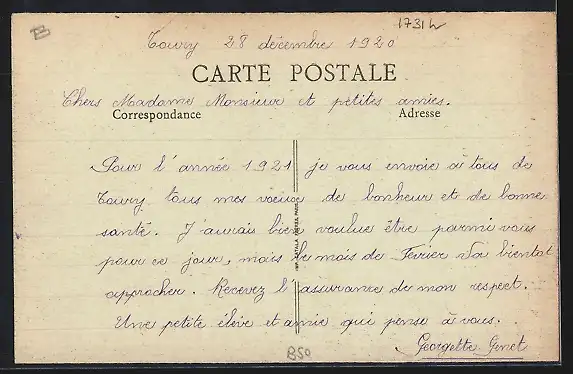 1731w
Toury 28 décembre 1920
CARTE POSTALE
Chers Madame Monsieur et petites amies.
Correspondance
Adresse
Pour l'année 1921 je vous envoie à tous de
Toury tous mes voeux de bonheur et de bonne
santé. J'aurais bien voulue être parmi vous
pour ce jour, mais le mois de Fevrier va bientot
approcher. Recevez l'assurance de mon respect.
Une petite élève et amie qui pense à vous.
Georgette Genet
B50